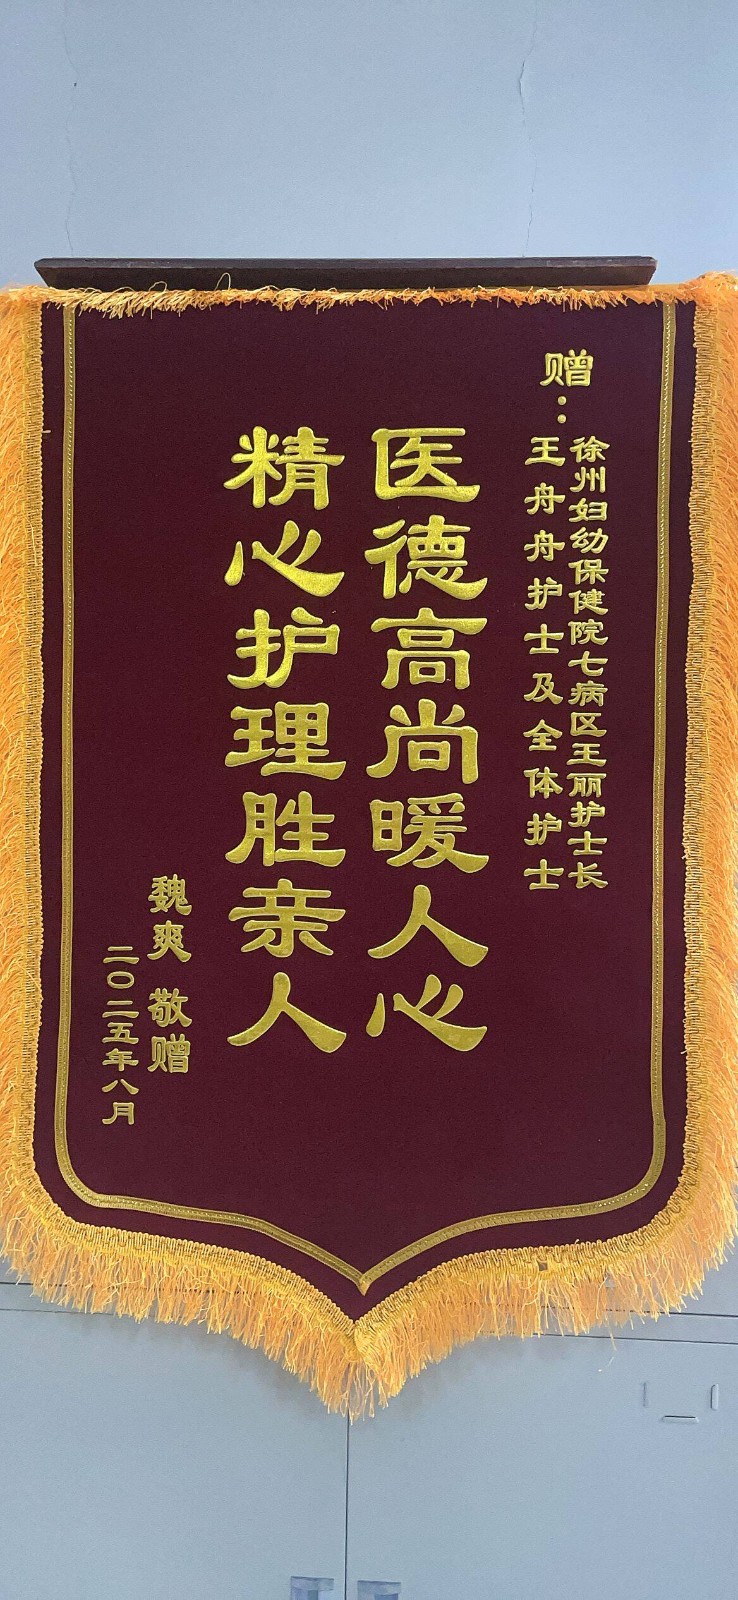 赠：
徐州妇幼保健院七病区王丽护士长
王舟舟护士及全体护士
医德高尚暖人心
精心护理胜亲人
魏爽 敬赠
二〇二五年八月